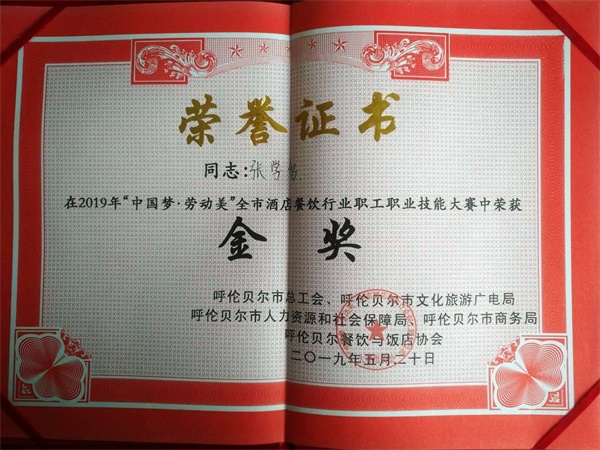 荣誉证书
同志：张学
在2019年“中国梦·劳动美”全市酒店餐饮行业职工职业技能大赛中荣获
金奖
呼伦贝尔市总工会、呼伦贝尔市文化旅游广电局
呼伦贝尔市人力资源和社会保障局、呼伦贝尔市商务局
呼伦贝尔餐饮与饭店协会
二〇一九年五月二十日